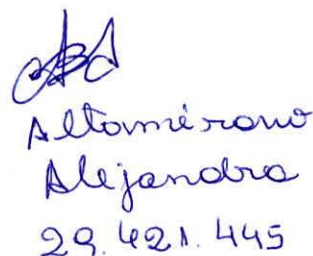 Altamirano
Alejandra
29.421.445